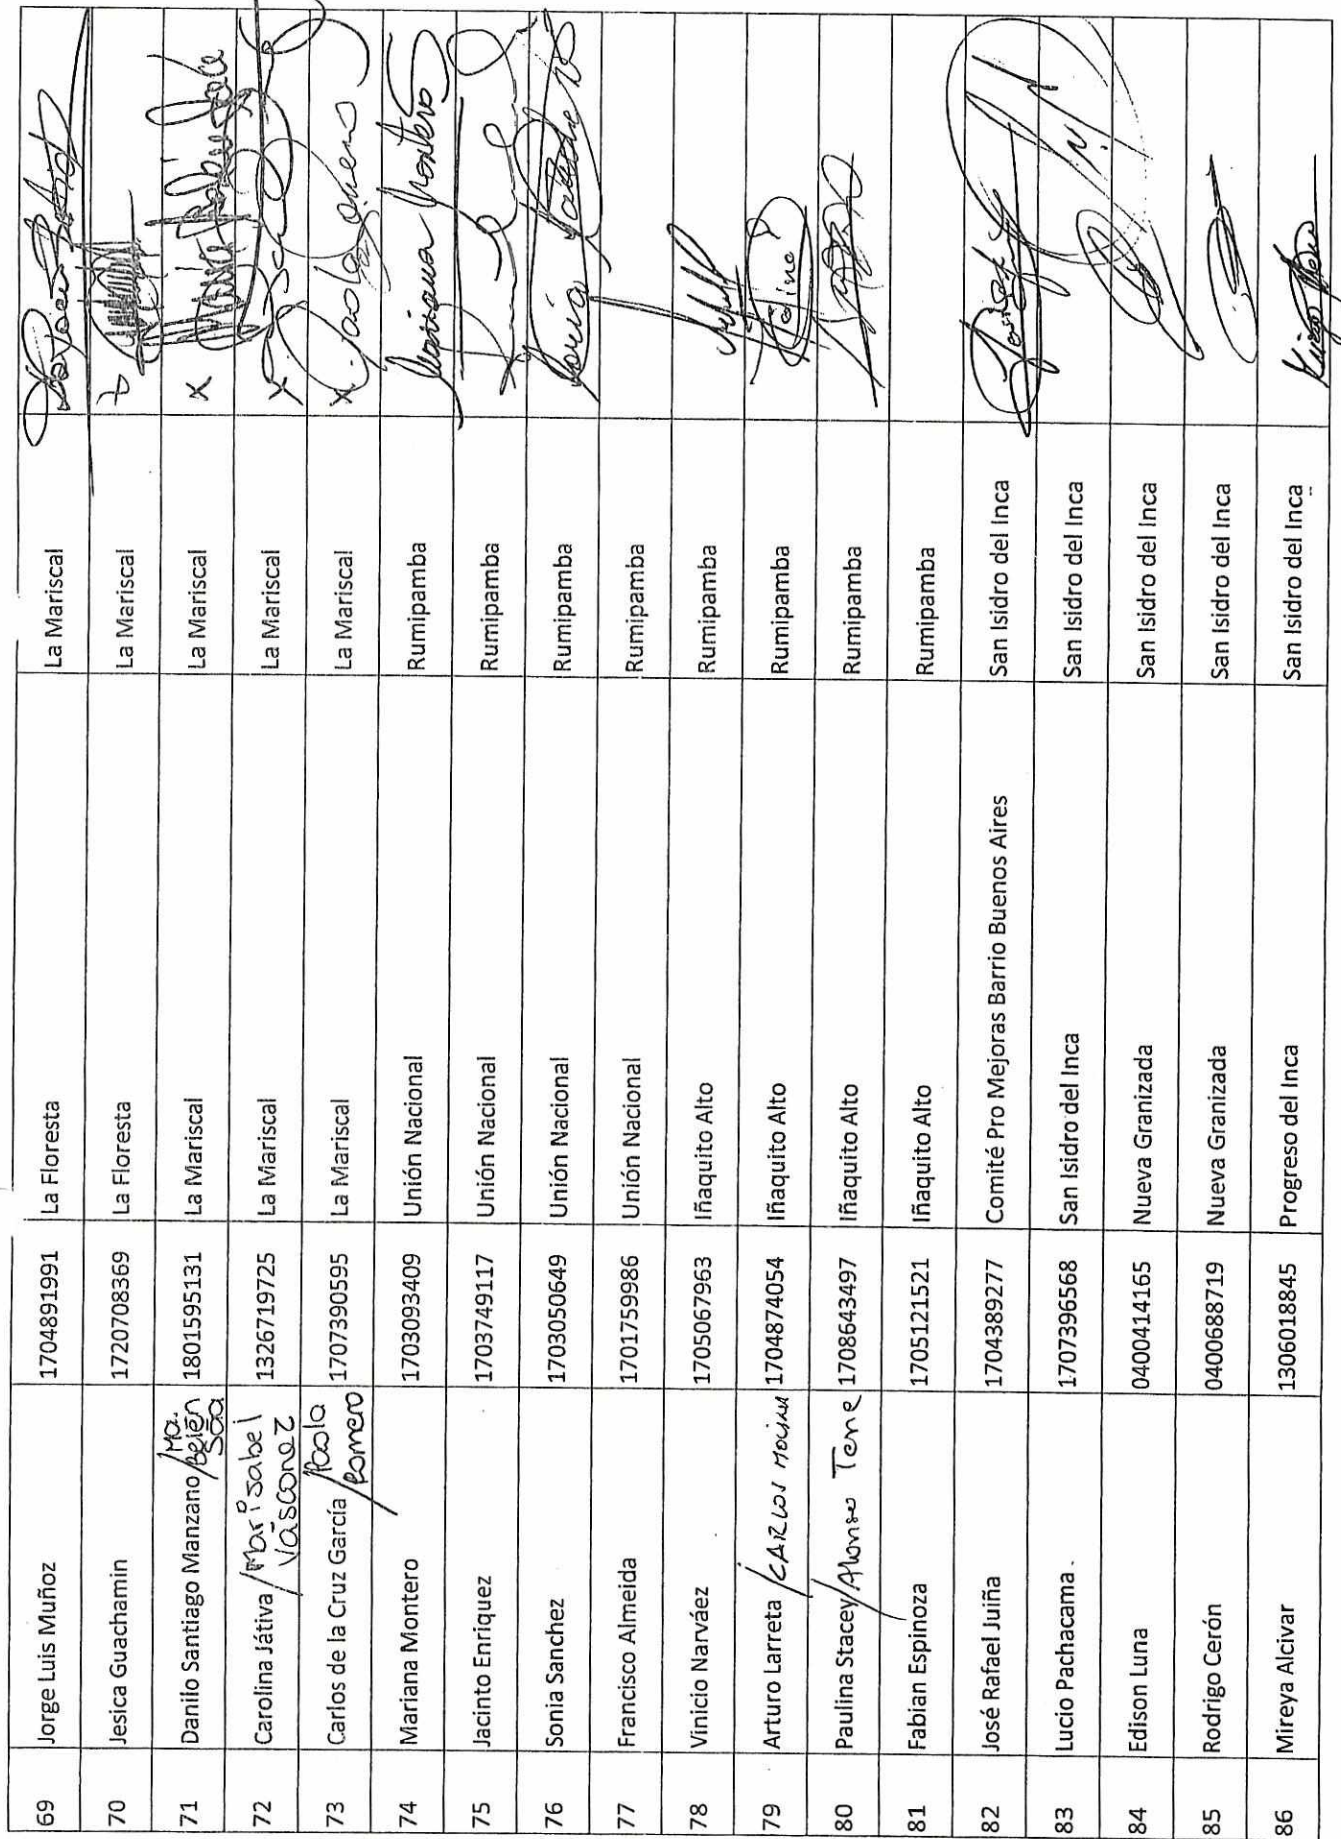 69 Jorge Luis Muñoz 1704891991 La Floresta La Mariscal
70 Jesica Guachamin 1720708369 La Floresta La Mariscal
71 Danilo Santiago Manzano / Ma. Belén Sáa 1801595131 La Mariscal La Mariscal X
72 Carolina Játiva / Marisabel Vásconez 1326719725 La Mariscal La Mariscal X
73 Carlos de la Cruz García / Paola Romero 1707390595 La Mariscal La Mariscal X
74 Mariana Montero 1703093409 Unión Nacional Rumipamba Mariana Montero
75 Jacinto Enriquez 1703749117 Unión Nacional Rumipamba
76 Sonia Sanchez 1703050649 Unión Nacional Rumipamba
77 Francisco Almeida 1701759986 Unión Nacional Rumipamba
78 Vinicio Narváez 1705067963 Iñaquito Alto Rumipamba
79 Arturo Larreta / CARLOS 1704874054 Iñaquito Alto Rumipamba
80 Paulina Stacey / Alonso Tene 1708643497 Iñaquito Alto Rumipamba
81 Fabian Espinoza 1705121521 Iñaquito Alto Rumipamba
82 José Rafael Juiña 1704389277 Comité Pro Mejoras Barrio Buenos Aires San Isidro del Inca
83 Lucio Pachacama. 1707396568 San Isidro del Inca San Isidro del Inca
84 Edison Luna 0400414165 Nueva Granizada San Isidro del Inca
85 Rodrigo Cerón 0400688719 Nueva Granizada San Isidro del Inca
86 Mireya Alcivar 1306018845 Progreso del Inca San Isidro del Inca